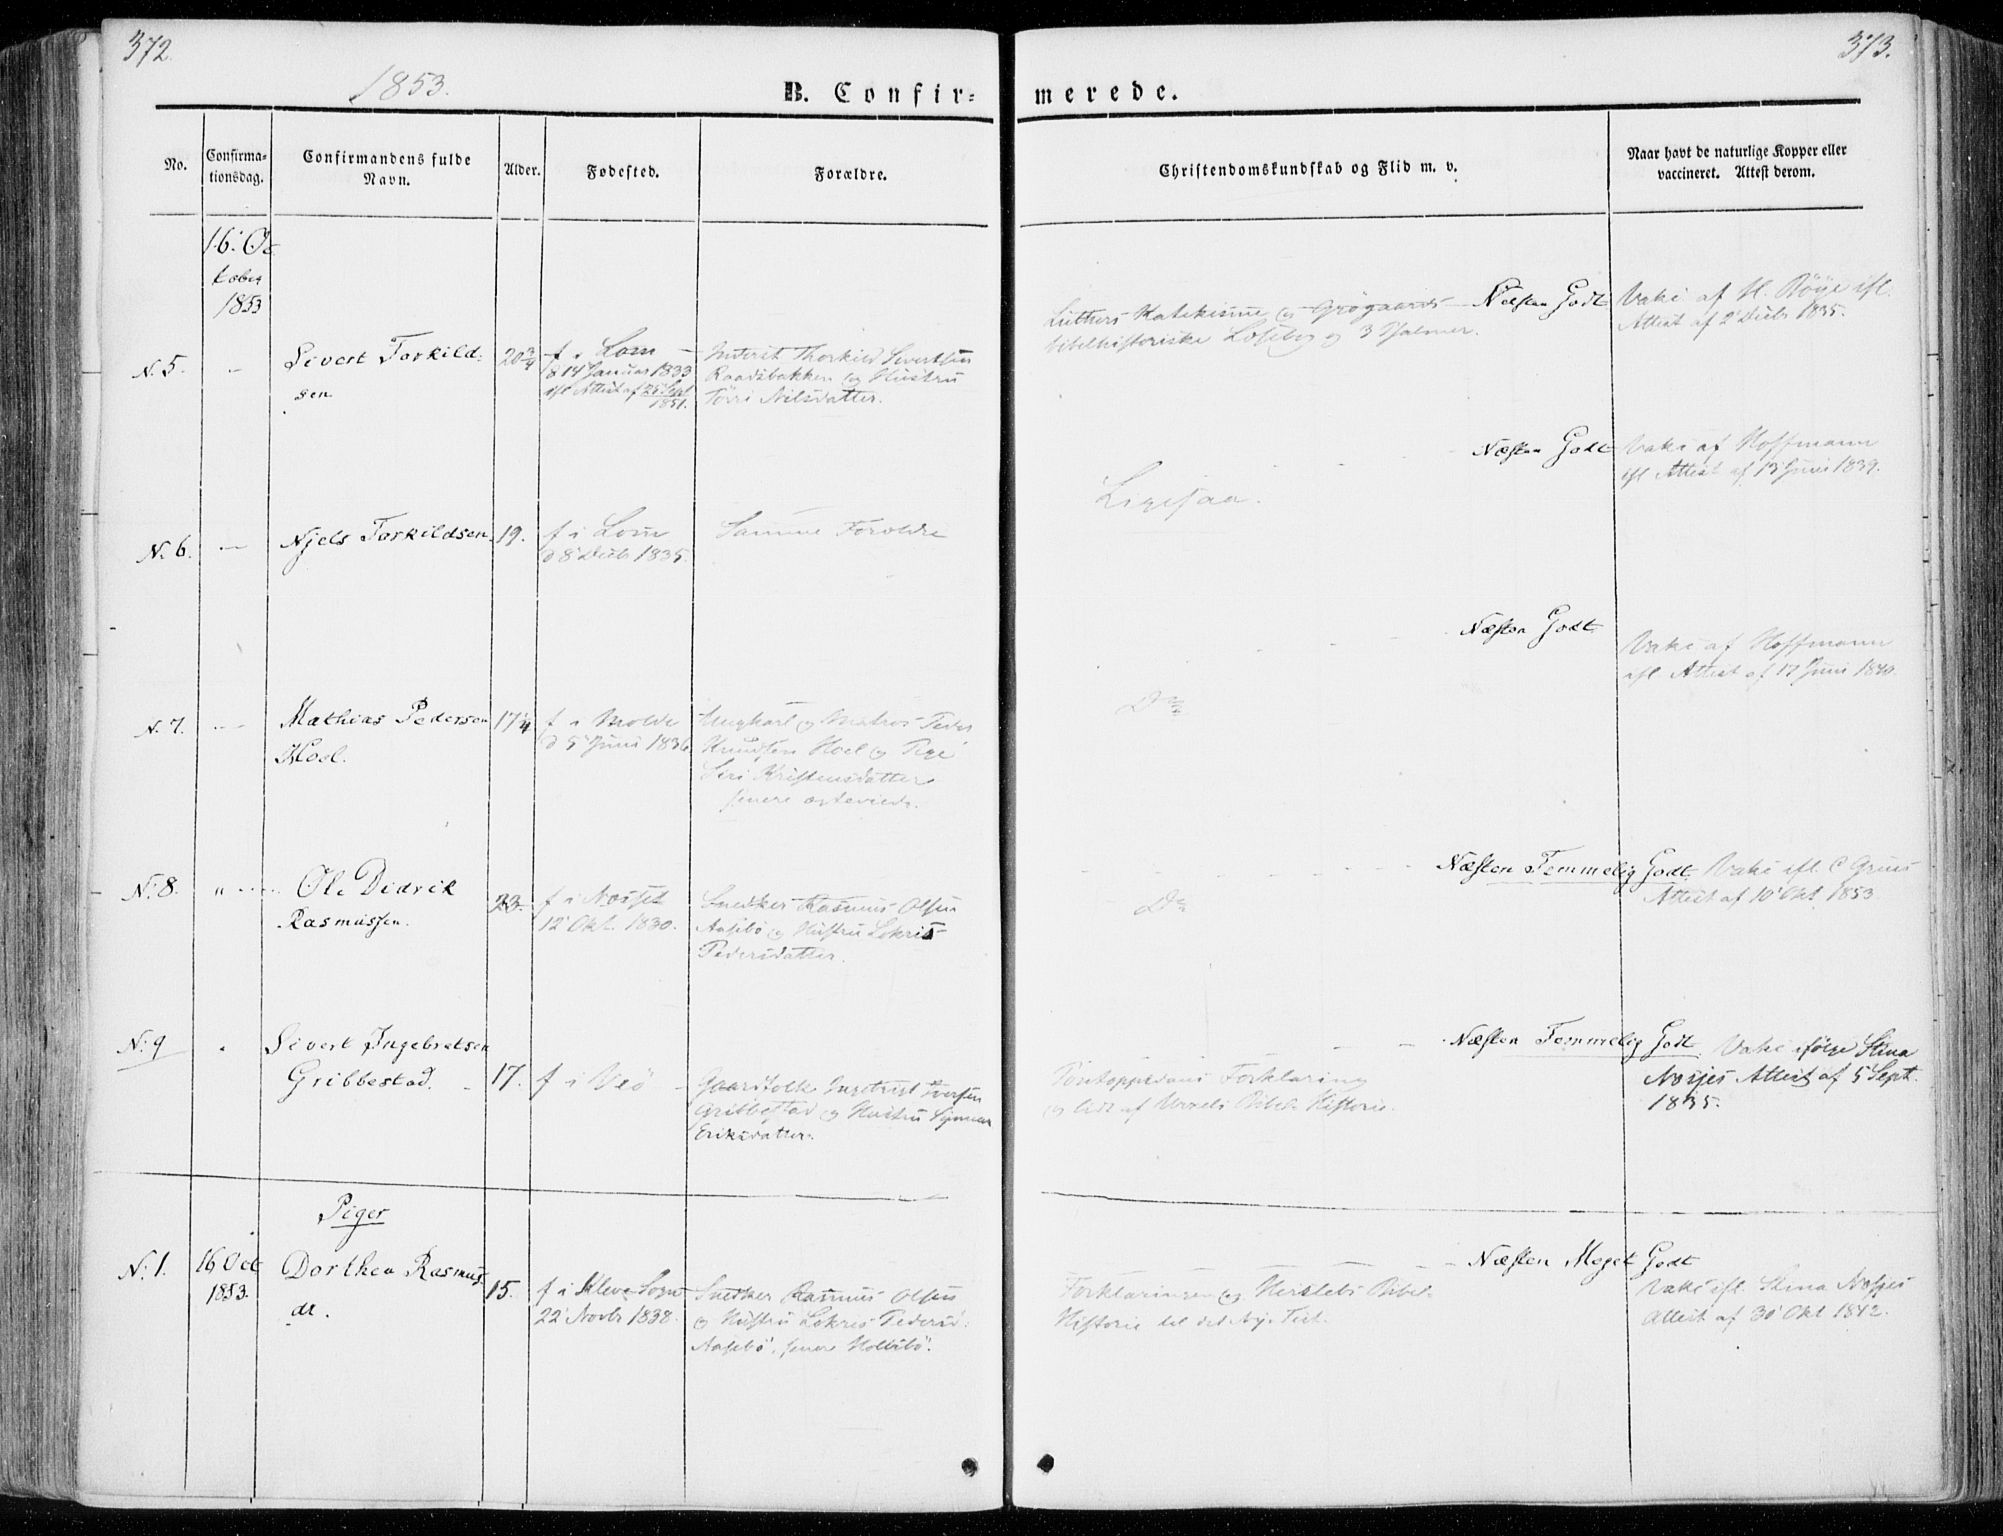 372.
373.
1853.
B. Confirmerede.
No.
Confirma-
tionsdag.
Confirmandens fulde
Navn.
Alder.
Fødested.
Forældre.
Christendomskundskab og Flid m. v.
Naar havt de naturlige Kopper eller
vaccineret. Attest derom.
16. Oc
tober
1853
N. 5.
Sivert Torkild-
sen
20 3/4
f i Lom
14 Januar 1833
ifl Attest af 25 Sept
1851.
Inderst Thorkild Sivertsen
Raadsbakken og Hustru
Nilsdatter.
Luthers Katekisme og Grøgaards
bibelhistoriske Læsebog og 3 Psalmer.
Næsten Godt
Vaki. af H. Röye ifl.
Attest af 2 Decb 1835.
N. 6.
Njels Torkildsen
19.
f i Lom
d 8 Decb 1835
Samme Foroldre
Ligesaa.
Næsten Godt
Vaki af Hoffmann
ifl. Attest af 13 Juni 1839.
N. 7.
Mathias Pedersen
Hoel.
17 1/4
f i Molde
d 5 Juni 1836
Ungkarl og Matros Peder
Knudsen Hoel og Pige
Siri Kristensdatter
senere ægteviede.
Do
Næsten Godt
Vaki af Hoffmann
ifl. Attest af 17 Juni 1840.
N. 8.
Ole Didrik
Rasmussen.
23.
f i Nesset
12 Okt. 1830.
Snedker Rasmus Olsen
Aasebö og Hustru Lokris
Pedersdatter.
Do
Næsten Temmelig Godt.
Vaki ifl. C Grüis
Attest af 10 Okt 1853
N. 9
Sivert Ingebretsen
Gribbestad.
17.
f i Veö
Gaardfolk Ingebrigt Iversen
Gribbestad og Hustru
Eriksdatter.
Pontoppidans Forklaring
og lidt af Vexels Bibel Historie.
Næsten Temmelig Godt.
Vaki ifölge Stina
Nosjes Attest af 5 Sept.
1835.
Piger
N. 1.
16 Oct
1853.
Dorthea Rasmus
dr.
15.
f i Kleve Sogn
22 Novb 1838.
Snedker Rasmus Olsen
og Hustru Lokris Pedersd.
Aasebö, senere Holtebö.
Forklaringen og Herslebs Bibel-
Historie til det Ny. Test.
Næsten Meget Godt
Vaki ifl. Stina Nosjes
Attest af 30 Okt 1842.